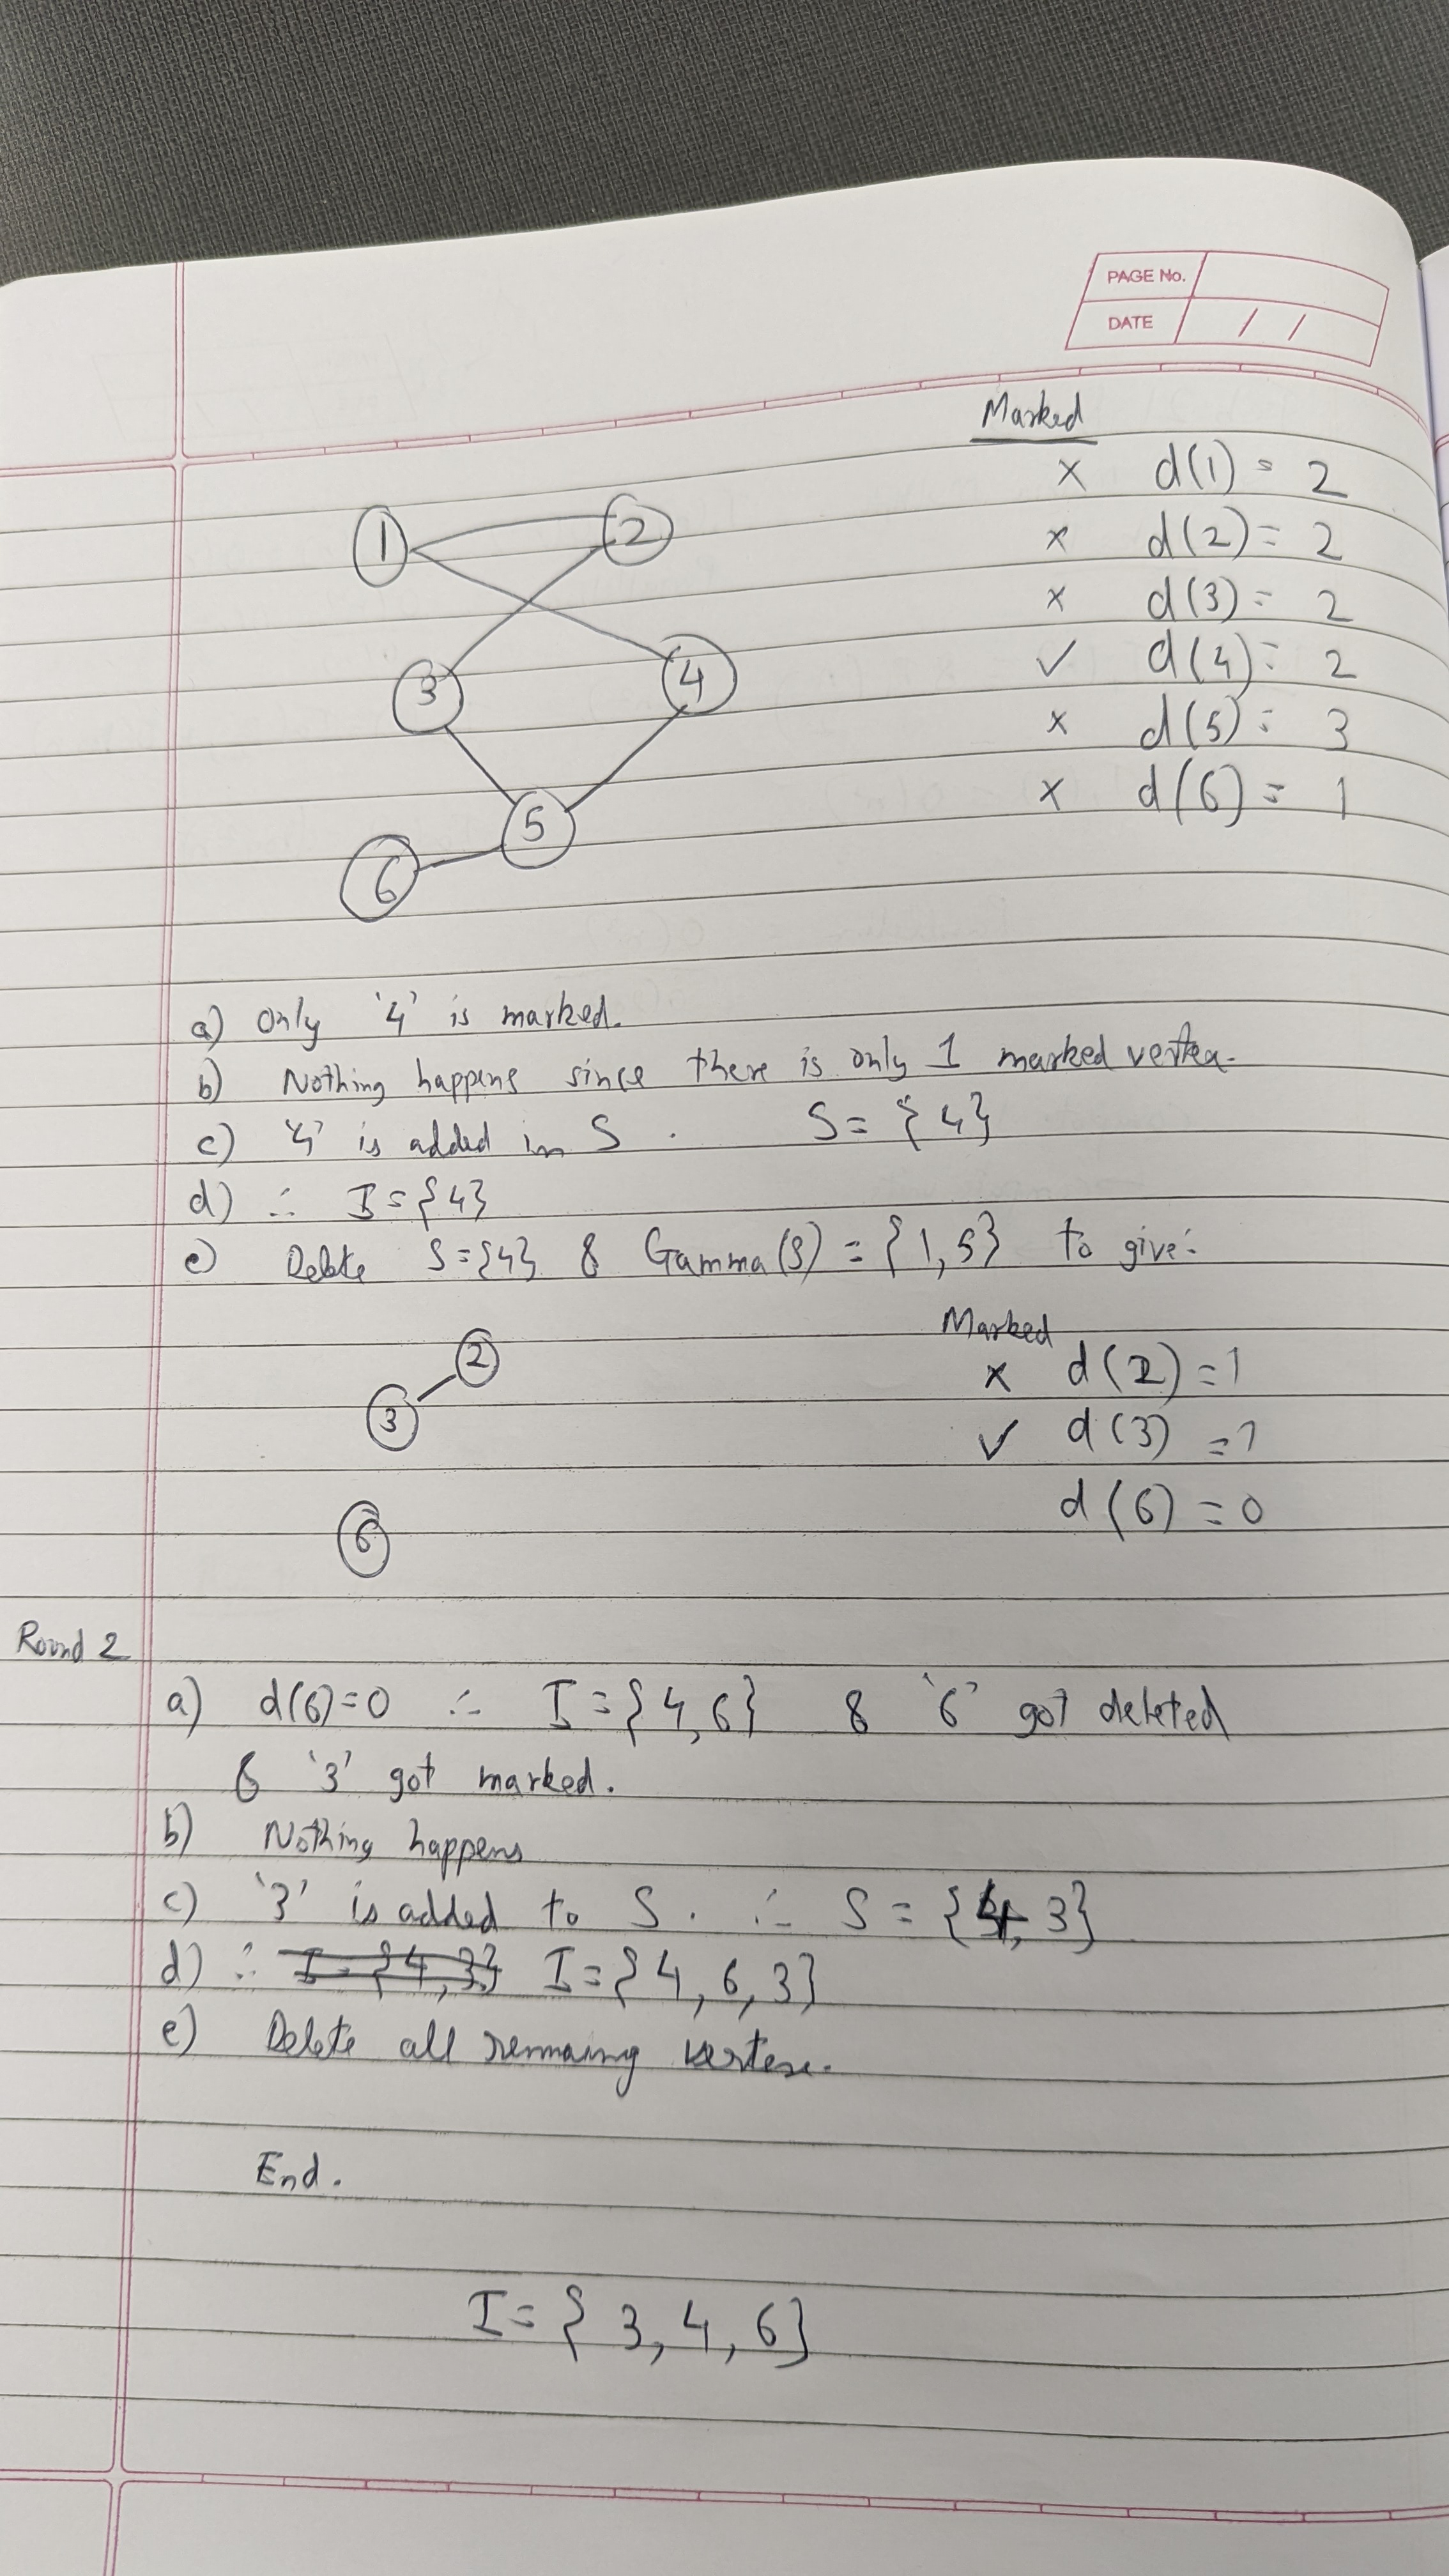 PAGE No.
DATE / /
Marked
x d(1) = 2
x d(2) = 2
x d(3) = 2
✓ d(4) = 2
x d(5) = 3
x d(6) = 1
1 2
3 4
5
6
a) Only '4' is marked.
b) Nothing happens since there is only 1 marked vertex.
c) '4' is added in S. S = {4}
d) ∴ I = {4}
e) Delete S = {4} & Gamma(S) = {1, 5} to give:
Marked
2 x d(2) = 1
3 ✓ d(3) = 1
6 d(6) = 0
Round 2
a) d(6) = 0 ∴ I = {4, 6} & '6' got deleted
& '3' got marked.
b) Nothing happens
c) '3' is added to S. ∴ S = {4, 3}
d) ∴ I = {4, 3} I = {4, 6, 3}
e) Delete all remaing vertex.
End.
I = {3, 4, 6}